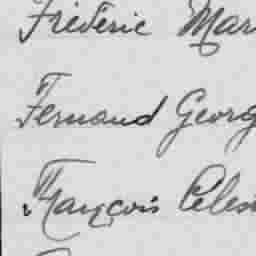 Frédéric Mar
Fernand Georg
François Céles